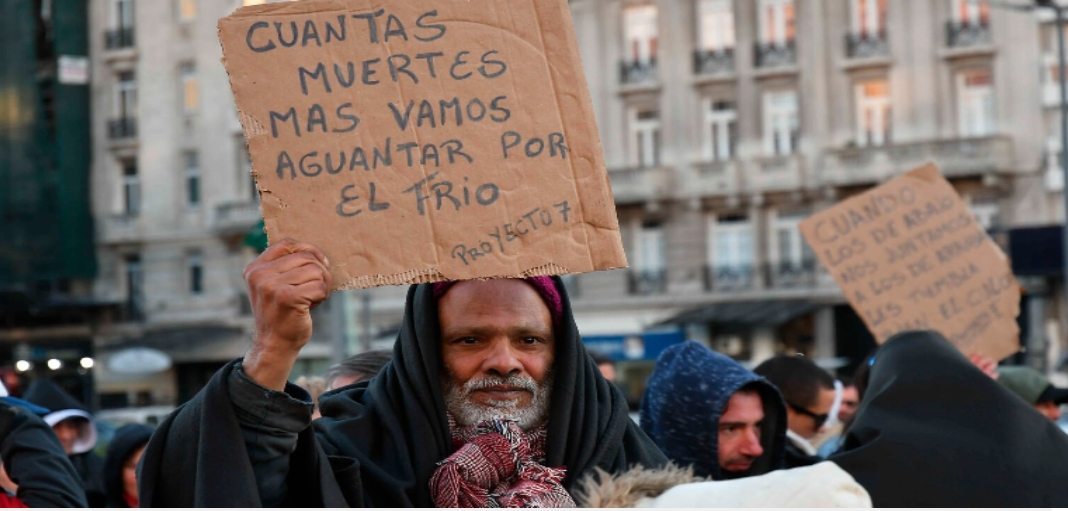 CUANTAS
MUERTES
MAS VAMOS
AGUANTAR POR
EL FRIO
PROYECTO 7
CUANDO
LOS DE ABAJO
NOS JUNTAMOS
A LOS DE ARRIBA
LES TUMBA
EL